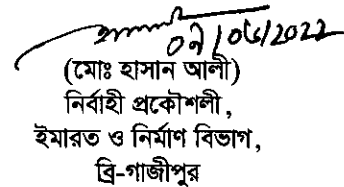 (মোঃ হাসান আলী)
নির্বাহী প্রকৌশলী,
ইমারত ও নির্মাণ বিভাগ,
ব্রি-গাজীপুর